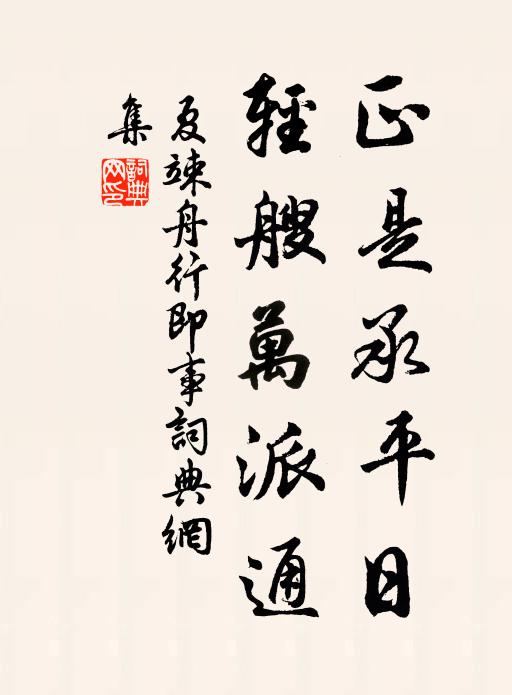 正是承平日
輕艘萬派通
夏竦舟行即事詞典網
集
詞典
网印